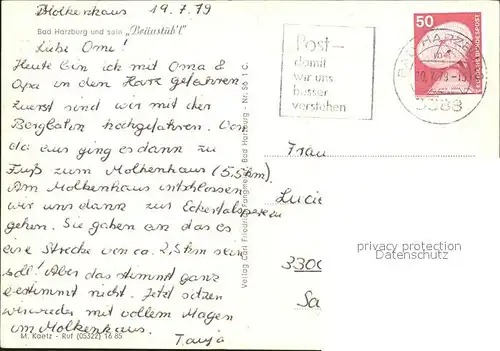 Molkenhaus 19.7.79
Bad Harzburg und sein „Bräustüb'l"
Liebe Omi!
Heute bin ich mit Oma &
Opa in den Harz gefahren.
Zuerst sind wir mit der
Bergbahn hochgefahren. Von
da aus ging es dann zu
Fuß zum Molkenhaus (5,5km).
Am Molkenhaus entschlossen
wir uns dann zur Eckertalsperre zu
gehen. Sie gaben an das es
eine Strecke von ca. 2,5km sein
soll! Aber das stimmt ganz
bestimmt nicht. Jetzt sitzen
wir wieder mit vollem Magen
im Molkenhaus.
Tanja
M. Kaetz - Ruf (05322) 16 85
Verlag Carl Friedrich Fangmeier, Bad Harzburg - Nr. Sb 1 C.
Post-
damit
wir uns
besser
verstehen
50
DEUTSCHE BUNDESPOST
BAD HARZBURG
3388
Frau
Lucie
3300
privacy protection
Datenschutz